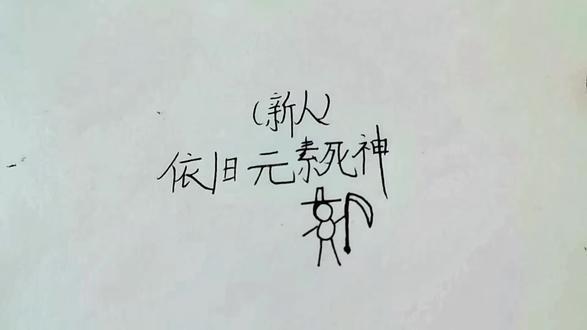 (新人)
依旧元素死神